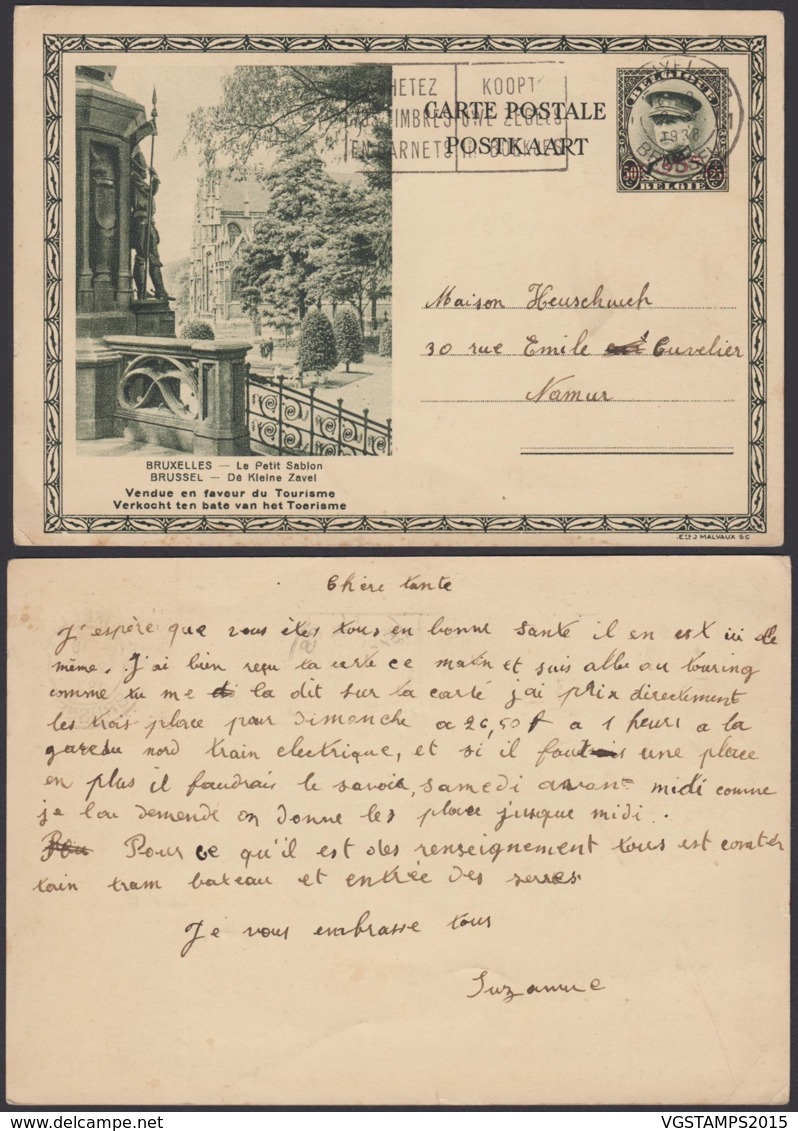 CARTE POSTALE
POSTKAART
KOOPT
BELGIQUE
1938
BELGIE
Maison Heuschuch
30 rue Emile Cuvelier
Namur
BRUXELLES — Le Petit Sablon
BRUSSEL — De Kleine Zavel
Vendue en faveur du Tourisme
Verkocht ten bate van het Toerisme
Ets J MALVAUX SC
Chère tante
J'espère que vous êtes tous en bonne santé il en est ici de
même. J'ai bien reçu ta carte ce matin et suis allé au touring
comme tu me la dit sur la carte j'ai prix directement
les trois place pour dimanche a 26,50 f a 1 heurs a la
gare du nord train electrique, et si il faut une place
en plus il faudrais le savoir, samedi avant midi comme
je lai demendé on donne les place jusque midi.
Pour ce qu'il est des renseignement tous est compter
tain tram bateau et entrée des serres
Je vous embrasse tous
Suzanne
VGSTAMPS2015